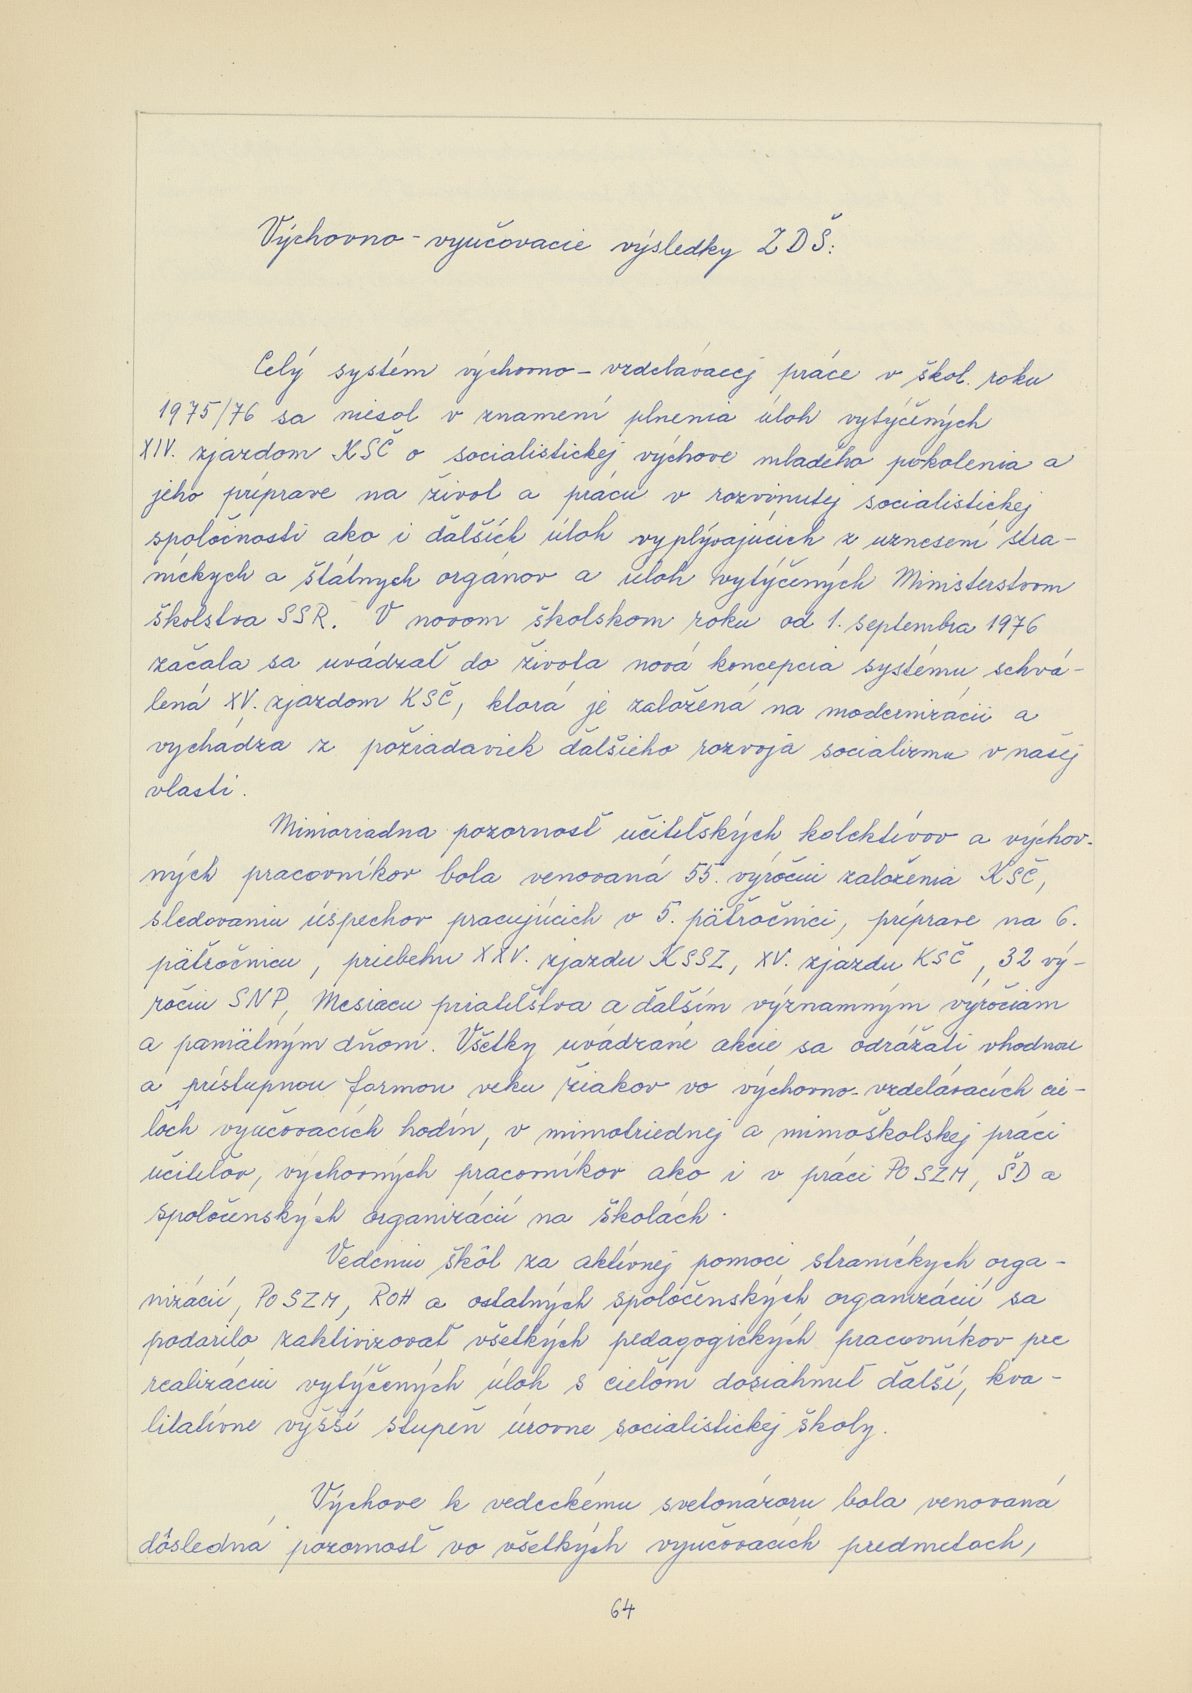 Výchovno-vyučovacie výsledky ZDŠ:
Celý systém výchovno-vzdelávacej práce v škol. roku
1975/76 sa niesol v znamení plnenia úloh vytýčených
XIV. zjazdom KSČ o socialistickej výchove mladého pokolenia a
jeho príprave na život a prácu v rozvinutej socialistickej
spoločnosti ako i ďalších úloh vyplývajúcich z uznesení stra-
níckych a štátnych orgánov a úloh vytýčených Ministerstvom
školstva SSR. V novom školskom roku od 1. septembra 1976
začala sa uvádzať do života nová koncepcia systému schvá-
lená XV. zjazdom KSČ, ktorá je založená na modernizácii a
vychádza z požiadaviek ďalšieho rozvoja socializmu v našej
vlasti.
Mimoriadna pozornosť učiteľských kolektívov a výchov-
ných pracovníkov bola venovaná 55. výročiu založenia KSČ,
sledovaniu úspechov pracujúcich v 5. päťročnici, príprave na 6.
päťročnicu, priebehu XXV. zjazdu KSSZ, XV. zjazdu KSČ, 32 vý-
ročiu SNP, Mesiacu priateľstva a ďalším významným výročiam
a pamätným dňom. Všetky uvádzané akcie sa odrážali vhodnou
a prístupnou formou veku žiakov vo výchovno-vzdelávacích cie-
ľoch vyučovacích hodín, v mimotriednej a mimoškolskej práci
učiteľov, výchovných pracovníkov ako i v práci PO SZM, ŠD a
spoločenských organizácií na školách.
Vedeniu škôl za aktívnej pomoci straníckych orga-
nizácií, PO SZM, ROH a ostatných spoločenských organizácií sa
podarilo zaktivizovať všetkých pedagogických pracovníkov pre
realizáciu vytýčených úloh s cieľom dosiahnuť ďalší, kva-
litatívne vyšší stupeň úrovne socialistickej školy.
Výchove k vedeckému svetonázoru bola venovaná
dôsledná pozornosť vo všetkých vyučovacích predmetoch,
64